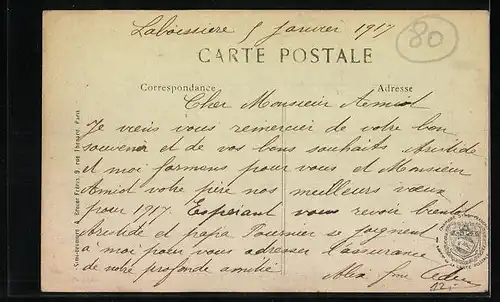 Laboissiere 5 Janvier 1917
80
CARTE POSTALE
Correspondance
Adresse
Cher Monsieur Amiot
Je viens vous remercier de votre bon
souvenir et de vos bons souhaits Aristide
et moi formons pour vous et Monsieur
Amiot votre père nos meilleurs vœux
pour 1917. Espérant vous revoir bientôt
Aristide et papa Fournier se joignent
a moi pour vous adresser l'assurance
de notre profonde amitié
12.-